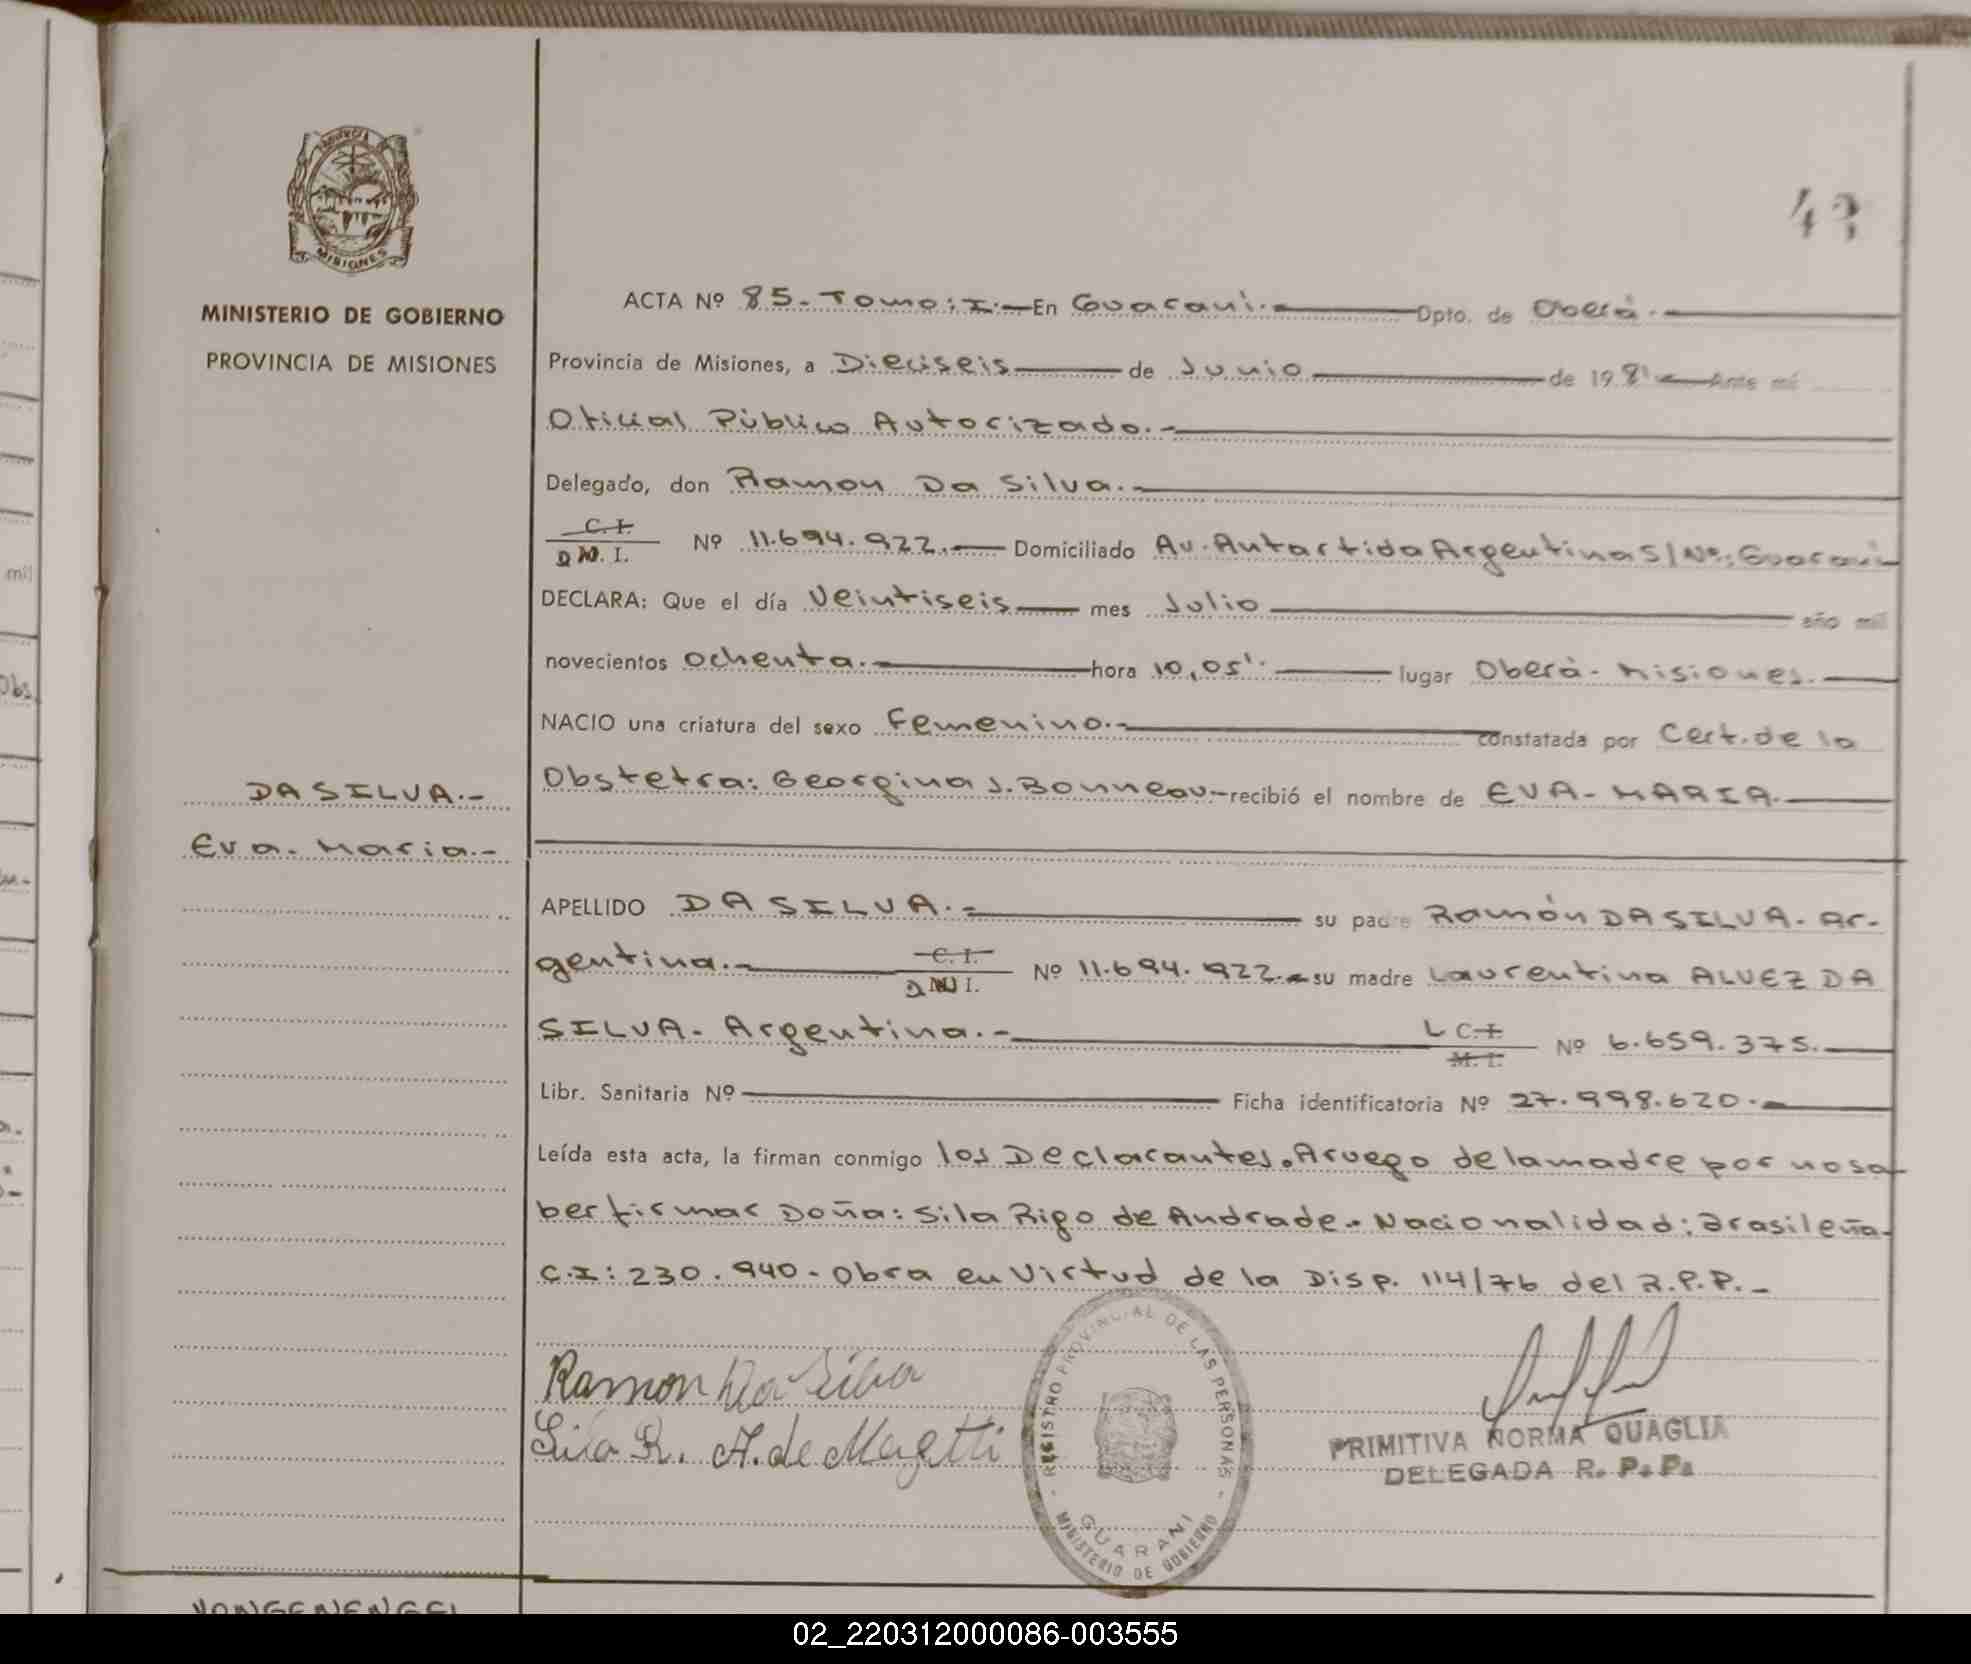 PROVINCIA
MISIONES
MINISTERIO DE GOBIERNO
PROVINCIA DE MISIONES
43
ACTA Nº 85.- Tomo: I.- En Guaraní.- Dpto. de Oberá.-
Provincia de Misiones, a Dieciseis de Junio de 1981 Ante mí
Oficial Público Autorizado.-
Delegado, don Ramon Da Silva.-
C. I.
D M. I. Nº 11.694.922.- Domiciliado Av. Antartida Argentina S/Nº: Guaraní
DECLARA: Que el día Veintiseis mes Julio año mil
novecientos Ochenta.- hora 10,05'.- lugar Oberá- Misiones.-
NACIO una criatura del sexo Femenino.- constatada por Cert. de la
Obstetra: Georgina J. Bonneau.- recibió el nombre de EVA- MARIA.-
DA SILVA.-
Eva- Maria.-
APELLIDO DA SILVA.- su padre Ramón DA SILVA- Ar-
gentina.- C. I.
D M I. Nº 11.694.922.- su madre Laurentina ALVEZ DA
SILVA- Argentina.- L C. I.
M. I. Nº 6.659.375.-
Libr. Sanitaria Nº Ficha identificatoria Nº 27.998.620.-
Leída esta acta, la firman conmigo los Declarantes. Aruego de la madre por no sa-
ber firmar Doña: Sila Rigo de Andrade.- Nacionalidad: Brasileña-
C.I: 230.940- Obra en Virtud de la Disp. 114/76 del R.P.P.-
Ramon Da Silva
Sila R. A. de Magetti
REGISTRO PROVINCIAL DE LAS PERSONAS
GUARANI
MINISTERIO DE GOBIERNO
PRIMITIVA NORMA QUAGLIA
DELEGADA R. P. P.
02_220312000086-003555